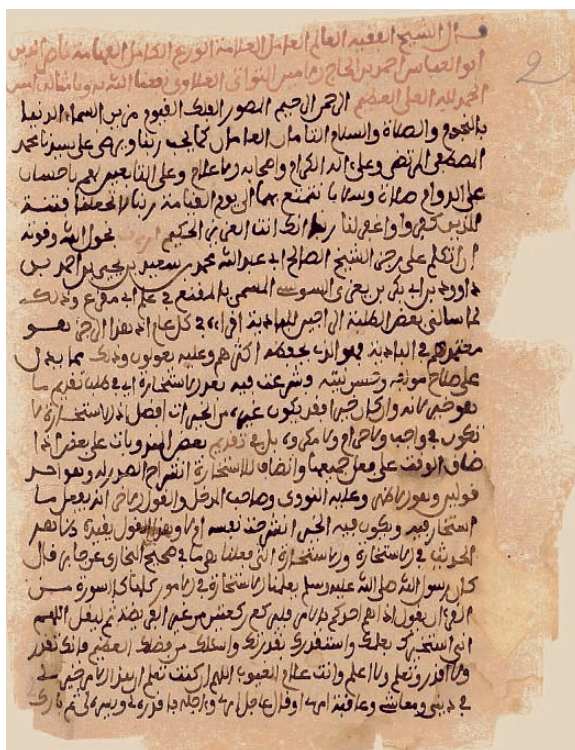 قال الشيخ الفقيه العالم العامل العلامة الورع الكامل الفهامة ناصر الدين
ابو العباس احمد بن الحاج العلاوي نفعنا الله به
الحمد لله العلي العظيم الرحمن الرحيم المصور الملك القيوم مزين السماء الدنيا
بالنجوم والصلاة والسلام التامان العامان كما يحب ربنا ويرضى على سيدنا محمد
المصطفى المرتضى وعلى اله الكرام واصحابه وعلى التابعين لهم باحسان
على الدوام صلاة وسلاما نتمتع بهما الى يوم القيامة ربنا لا تجعلنا فتنة
للذين كفروا واغفر لنا ربنا انك انت العزيز الحكيم بحول الله وقوته
ان اتكلم على رجز الشيخ الصالح ابي عبد الله محمد بن سعيد بن يحيى بن احمد بن
داوود بن ابي بكر بن يعزى السوسي المسمى بالمقنع في علم ابي مقرع وذلك
لما سالني بعض الطلبة في كل عام اذ هذا الرجز هو
معتمدهم في البادية فهو الذي يحفظه اكثرهم وعليه يعولون وذلك مما يدل
على صلاح مولفه وحسن نيته وشرعت فيه بعد الاستخارة اي طلبنا تقديم ما
هو خير لانه وان كان خيرا فقد يكون غيره من الخيرات افضل اذ الاستخارة لا
تكون في واجب ولا حرام ولا مكروه بل في تقديم بعض المندوبات على بعض اذا
ضاق الوقت على فعل جميعها وانضاف للاستخارة انشراح الصدر له وهو احد
قولين وهو وعليه النووي وصاحب المدخل والقول انه يفعل ما
استخار فيه ويكون فيه الخير انشرحت نفسه ام لا
الحديث في الاستخارة والاستخارة التي فعلنا هي ما في صحيح البخاري عن جابر قال
كان رسول الله صلى الله عليه وسلم يعلمنا الاستخارة في الامور كلها كالسورة من
القرءان يقول اذا هم احدكم بالامر فليركع ركعتين من غير الفريضة ثم ليقل اللهم
اني استخيرك بعلمك واستقدرك بقدرتك واسئلك من فضلك العظيم فانك تقدر
ولا اقدر وتعلم ولا اعلم وانت علام الغيوب اللهم ان كنت تعلم ان هذا الامر خير لي
في ديني ومعاشي وعاقبة امري او قال عاجل امري واجله فاقدره لي ويسره لي ثم بارك
2